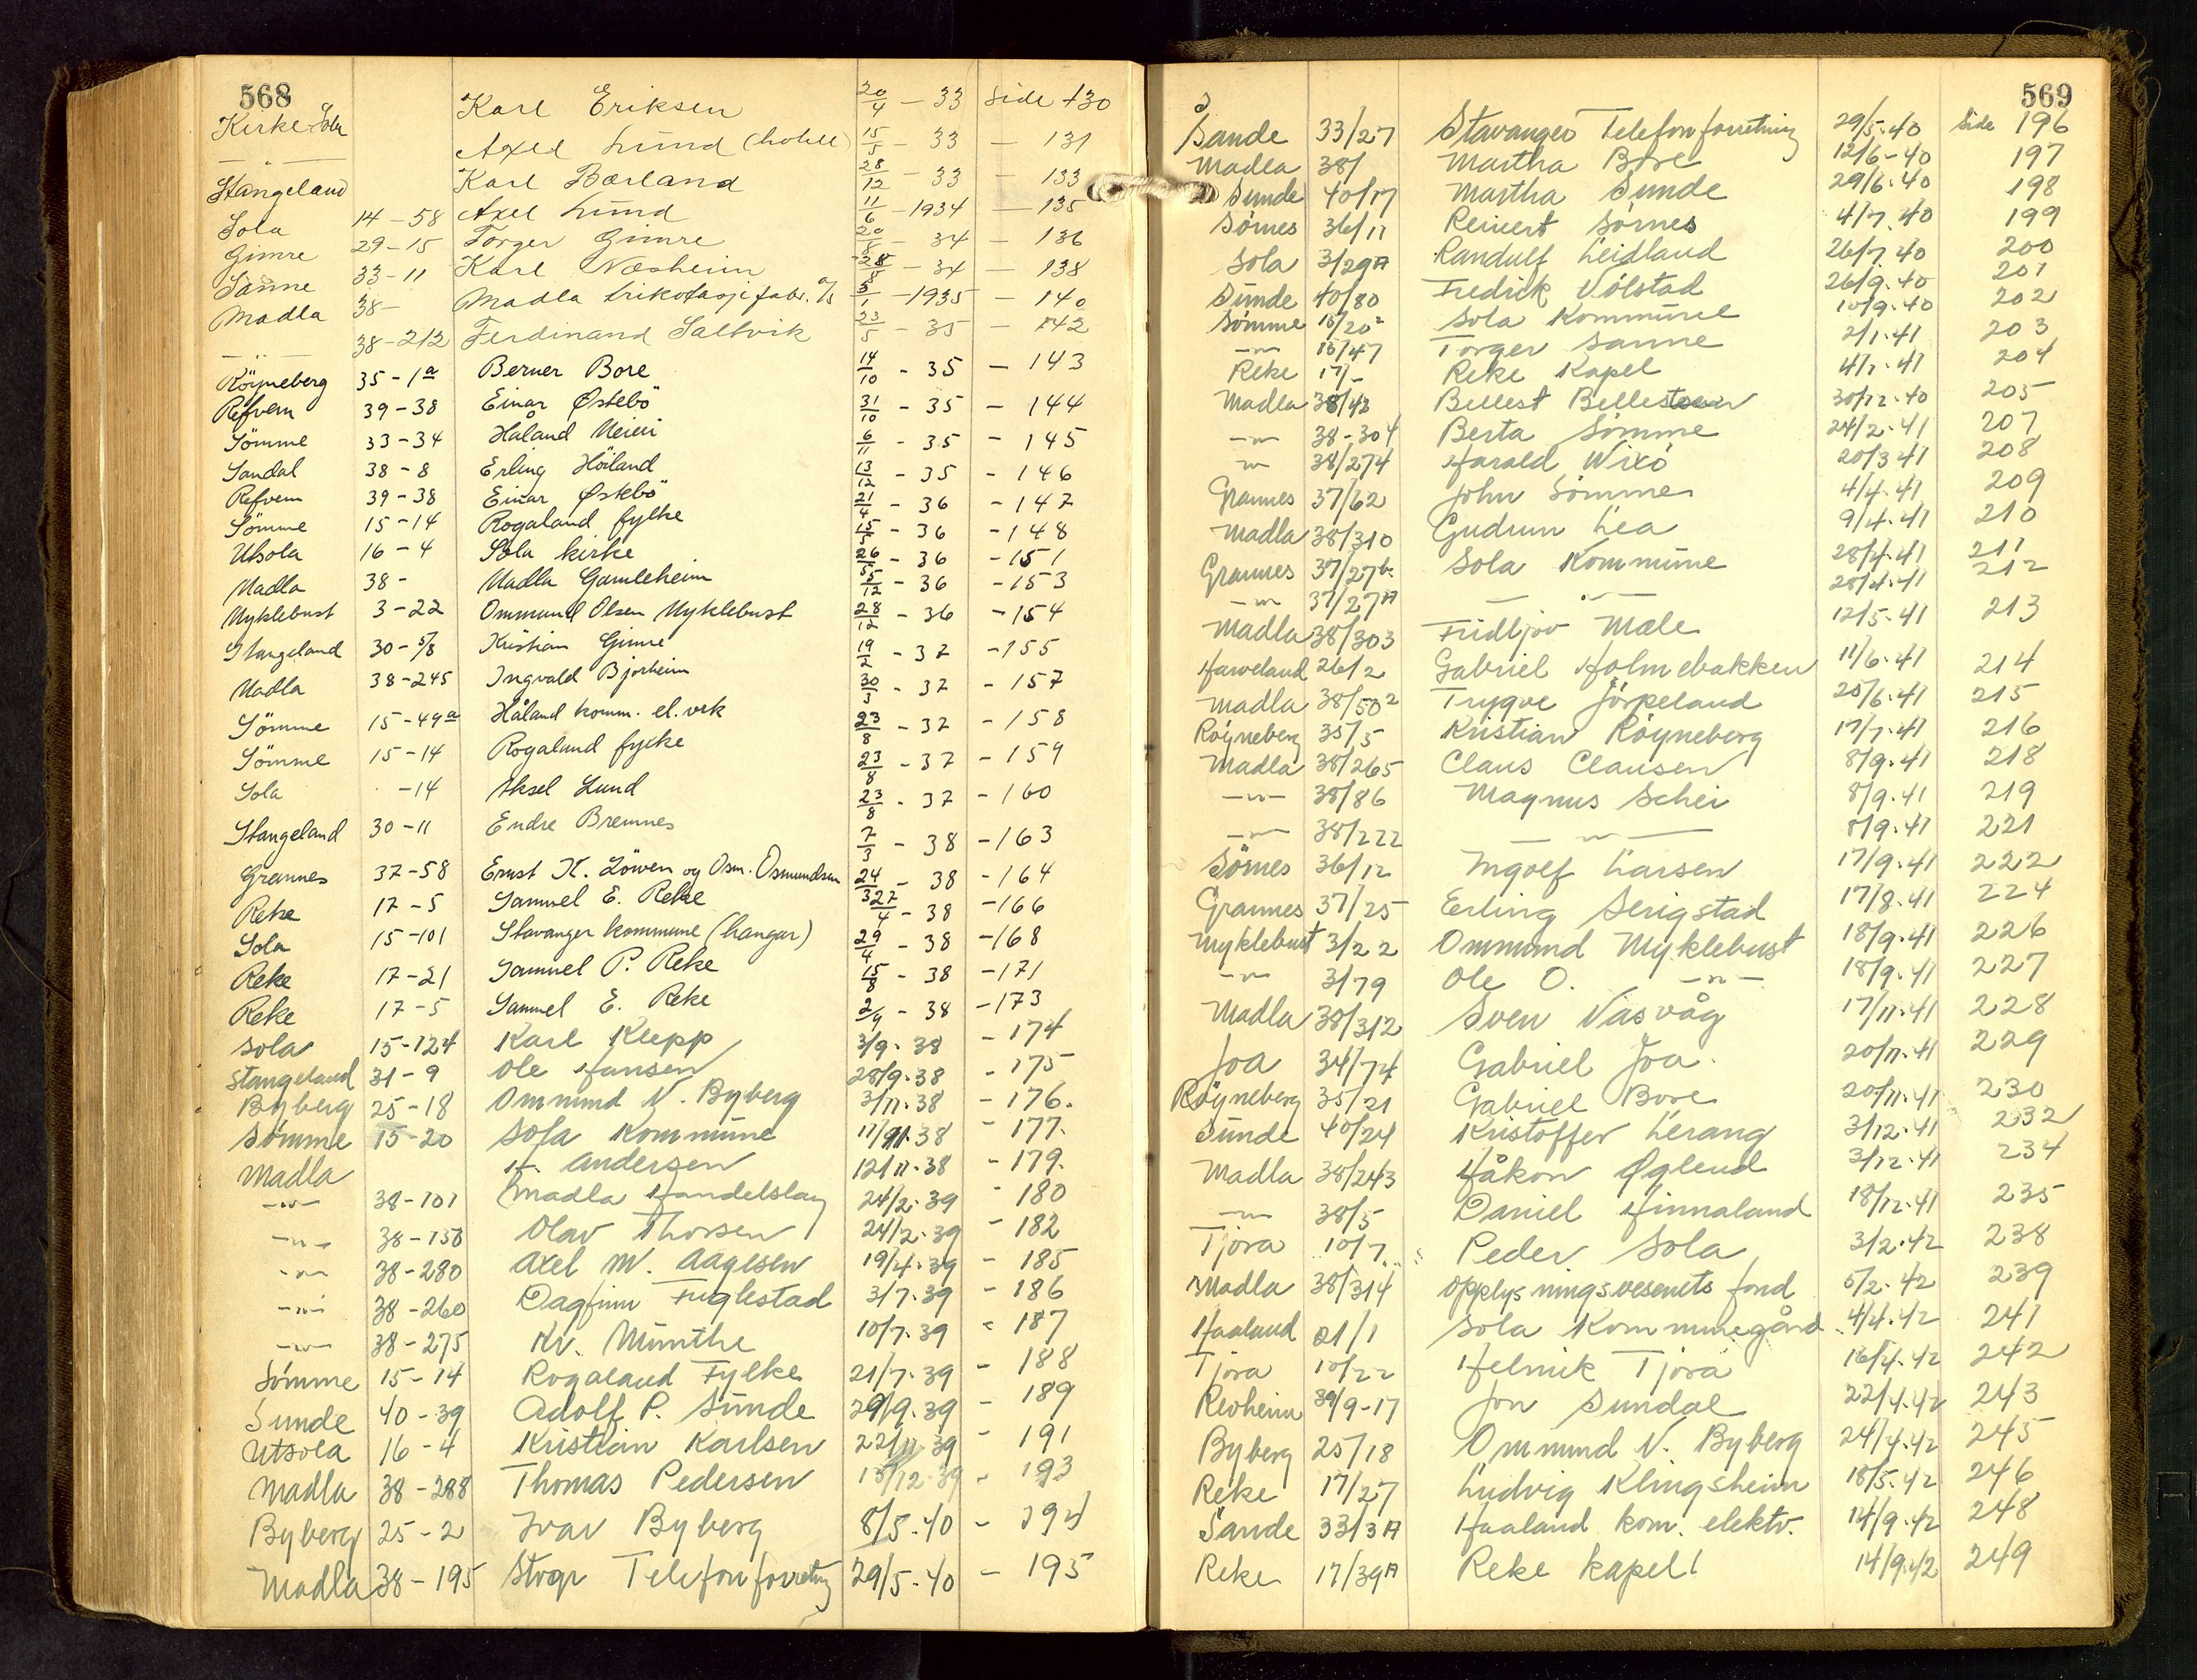 568
Kirke Sola Karl Eriksen 20/4 - 33 Side 130
— " — Axel Lund (hotell) 15/5 - 33 — 131
Stangeland Karl Bærland 28/12 - 33 — 133
Sola 14-58 Axel Lund 11/6 - 1934 — 135
Gimre 29-15 Torger Gimre 20/8 - 34 — 136
Sanne 33-11 Karl Næsheim 28/8 - 34 — 138
Madla 38- Madla trikotasjefabr. A/S 3/1 - 1935 — 140
— " — 38-212 Ferdinand Saltvik 23/5 - 35 — 142
Röyneberg 35-1a Berner Bore 14/10 - 35 — 143
Refvem 39-38 Einar Østebö 31/10 - 35 — 144
Sömme 33-34 Håland Meieri 6/11 - 35 - 145
Sandal 38-8 Erling Höiland 13/12 - 35 - 146
Refvem 39-38 Einar Østebö 21/4 - 36 - 147
Sömme 15-14 Rogaland fylke 15/5 - 36 - 148
Utsola 16-4 Sola kirke 26/5 - 36 - 151
Madla 38- Madla Gamleheim 5/12 - 36 - 153
Myklebust 3-22 Ommund Olsen Myklebust 28/12 - 36 - 154
Stangeland 30-5/8 Kristian Gimre 19/2 - 37 - 155
Madla 38-245 Ingvald Bjorheim 30/3 - 37 - 157
Sömme 15-49a Håland komm. el. verk 23/8 - 37 - 158
Sömme 15-14 Rogaland fylke 23/8 - 37 - 159
Sola -14 Aksel Lund 23/8 - 37 - 160
Stangeland 30-11 Endre Bremnes 7/3 - 38 - 163
Grannes 37-58 Ernst K. Löwen og Osm. Osmundsen 24/3 - 38 - 164
Reke 17-5 Samuel E. Reke 27/4 - 38 - 166
Sola 15-101 Stavanger kommune (hangar) 29/4 - 38 - 168
Reke 17-21 Samuel P. Reke 15/8 - 38 - 171
Reke 17-5 Samuel E. Reke 2/9 - 38 - 173
Sola 15-124 Karl Klepp 3/9. 38 - 174
Stangeland 31-9 Ole Hansen 28/9. 38 - 175
Byberg 25-18 Ommund N. Byberg 3/11. 38 - 176.
Sømme 15-20 Sola Kommune 11/11. 38 - 177.
Madla H. Andersen 12/11. 38 - 179.
— " — 38-101 Madla Handelslag 24/2. 39 - 180
— " — 38-158 Olav Thorsen 24/2. 39 - 182
— " — 38-280 Axel M. Aagesen 19/4. 39 - 185
— " — 38-260 Dagfinn Fuglestad 3/7. 39 - 186
— " — 38-275 Kr. Munthe 10/7. 39 - 187
Sömme 15-14 Rogaland Fylke 21/7. 39 - 188
Sunde 40-39 Adolf P. Sunde 29/9. 39 - 189
Utsola 16-4 Kristian Karlsen 22/11 39 - 191
Madla 38-288 Thomas Pedersen 15/12. 39 - 193
Byberg 25-2 Ivar Byberg 8/5. 40 - 194
Madla 38-195 Stvgr Telefonforretng 29/5. 40 - 195
569
Sande 33/27 Stavanger Telefonforretning 29/5. 40 Side 196
Madla 38/ Martha Bore 12/6 - 40 197
Sunde 40/17 Martha Sunde 29/6. 40 198
Sörnes 36/11 Reinert Sörnes 4/7. 40 199
Sola 3/29A Randulf Leidland 26/7. 40 200
Sunde 40/80 Fredrik Völstad 26/9. 40 201
Sømme 15/20² Sola Kommune 10/9. 40 202
— " — 15/47 Torger Sanne 2/1. 41 203
Reke 17/- Reke Kapel 4/1. 41 204
Madla 38/42 Bellest Bellesteen 30/12. 40 205
— " — 38-304 Berta Sømme 24/2. 41 207
— " — 38/274 Harald Wixö 20/3 41 208
Grannes 37/62 John Sömme 4/4. 41 209
Madla 38/310 Gudrun Lea 9/4. 41 210
Grannes 37/27b. Sola Kommune 28/4. 41 211
— " — 37/27A — " — 28/4. 41 212
Madla 38/303 Fridtjov Mæle 12/5. 41 213
Harveland 26/2 Gabriel Holmebakken 11/6. 41 214
Madla 38/50² Trygve Jörpeland 25/6. 41 215
Röyneberg 35/5 Kristian Röyneberg 17/7. 41 216
Madla 38/265 Claus Clausen 8/9. 41 218
— " — 38/86 Magnus Schei 8/9. 41 219
— " — 38/222 — " — 8/9. 41 221
Sörnes 36/12 Ingolf Larsen 17/9. 41 222
Grannes 37/25 Erling Serigstad 17/8. 41 224
Myklebust 3/22 Ommund Myklebust 18/9. 41 226
— " — 3/79 Ole O. — " — 18/9. 41 227
Madla 38/312 Sven Vasvåg 17/11. 41 228
Joa 34/74 Gabriel Joa. 20/11. 41 229
Röyneberg 35/21 Gabriel Bore 20/11. 41 230
Sunde 40/24 Kristoffer Lerang 3/12. 41 232
Madla 38/243 Håkon Øglend 3/12. 41 234
— " — 38/5 Daniel Hinnaland 18/12. 41 235
Tjora 10/7 Peder Sola 3/2. 42 238
Madla 38/314 Opplysningsvesenets fond 5/2. 42 239
Haaland 21/1 Sola Kommunegård 4/4. 42 241
Tjora 10/22 Helmik Tjora 16/4. 42 242
Revheim 39/9-17 Jon Sundal 22/4. 42 243
Byberg 25/18 Ommund N. Byberg 24/4. 42 245
Reke 17/27 Ludvig Klingsheim 18/5. 42 246
Sande 33/3A Haaland kom. elektv. 14/9. 42 248
Reke 17/39A Reke kapell 14/9. 42 249